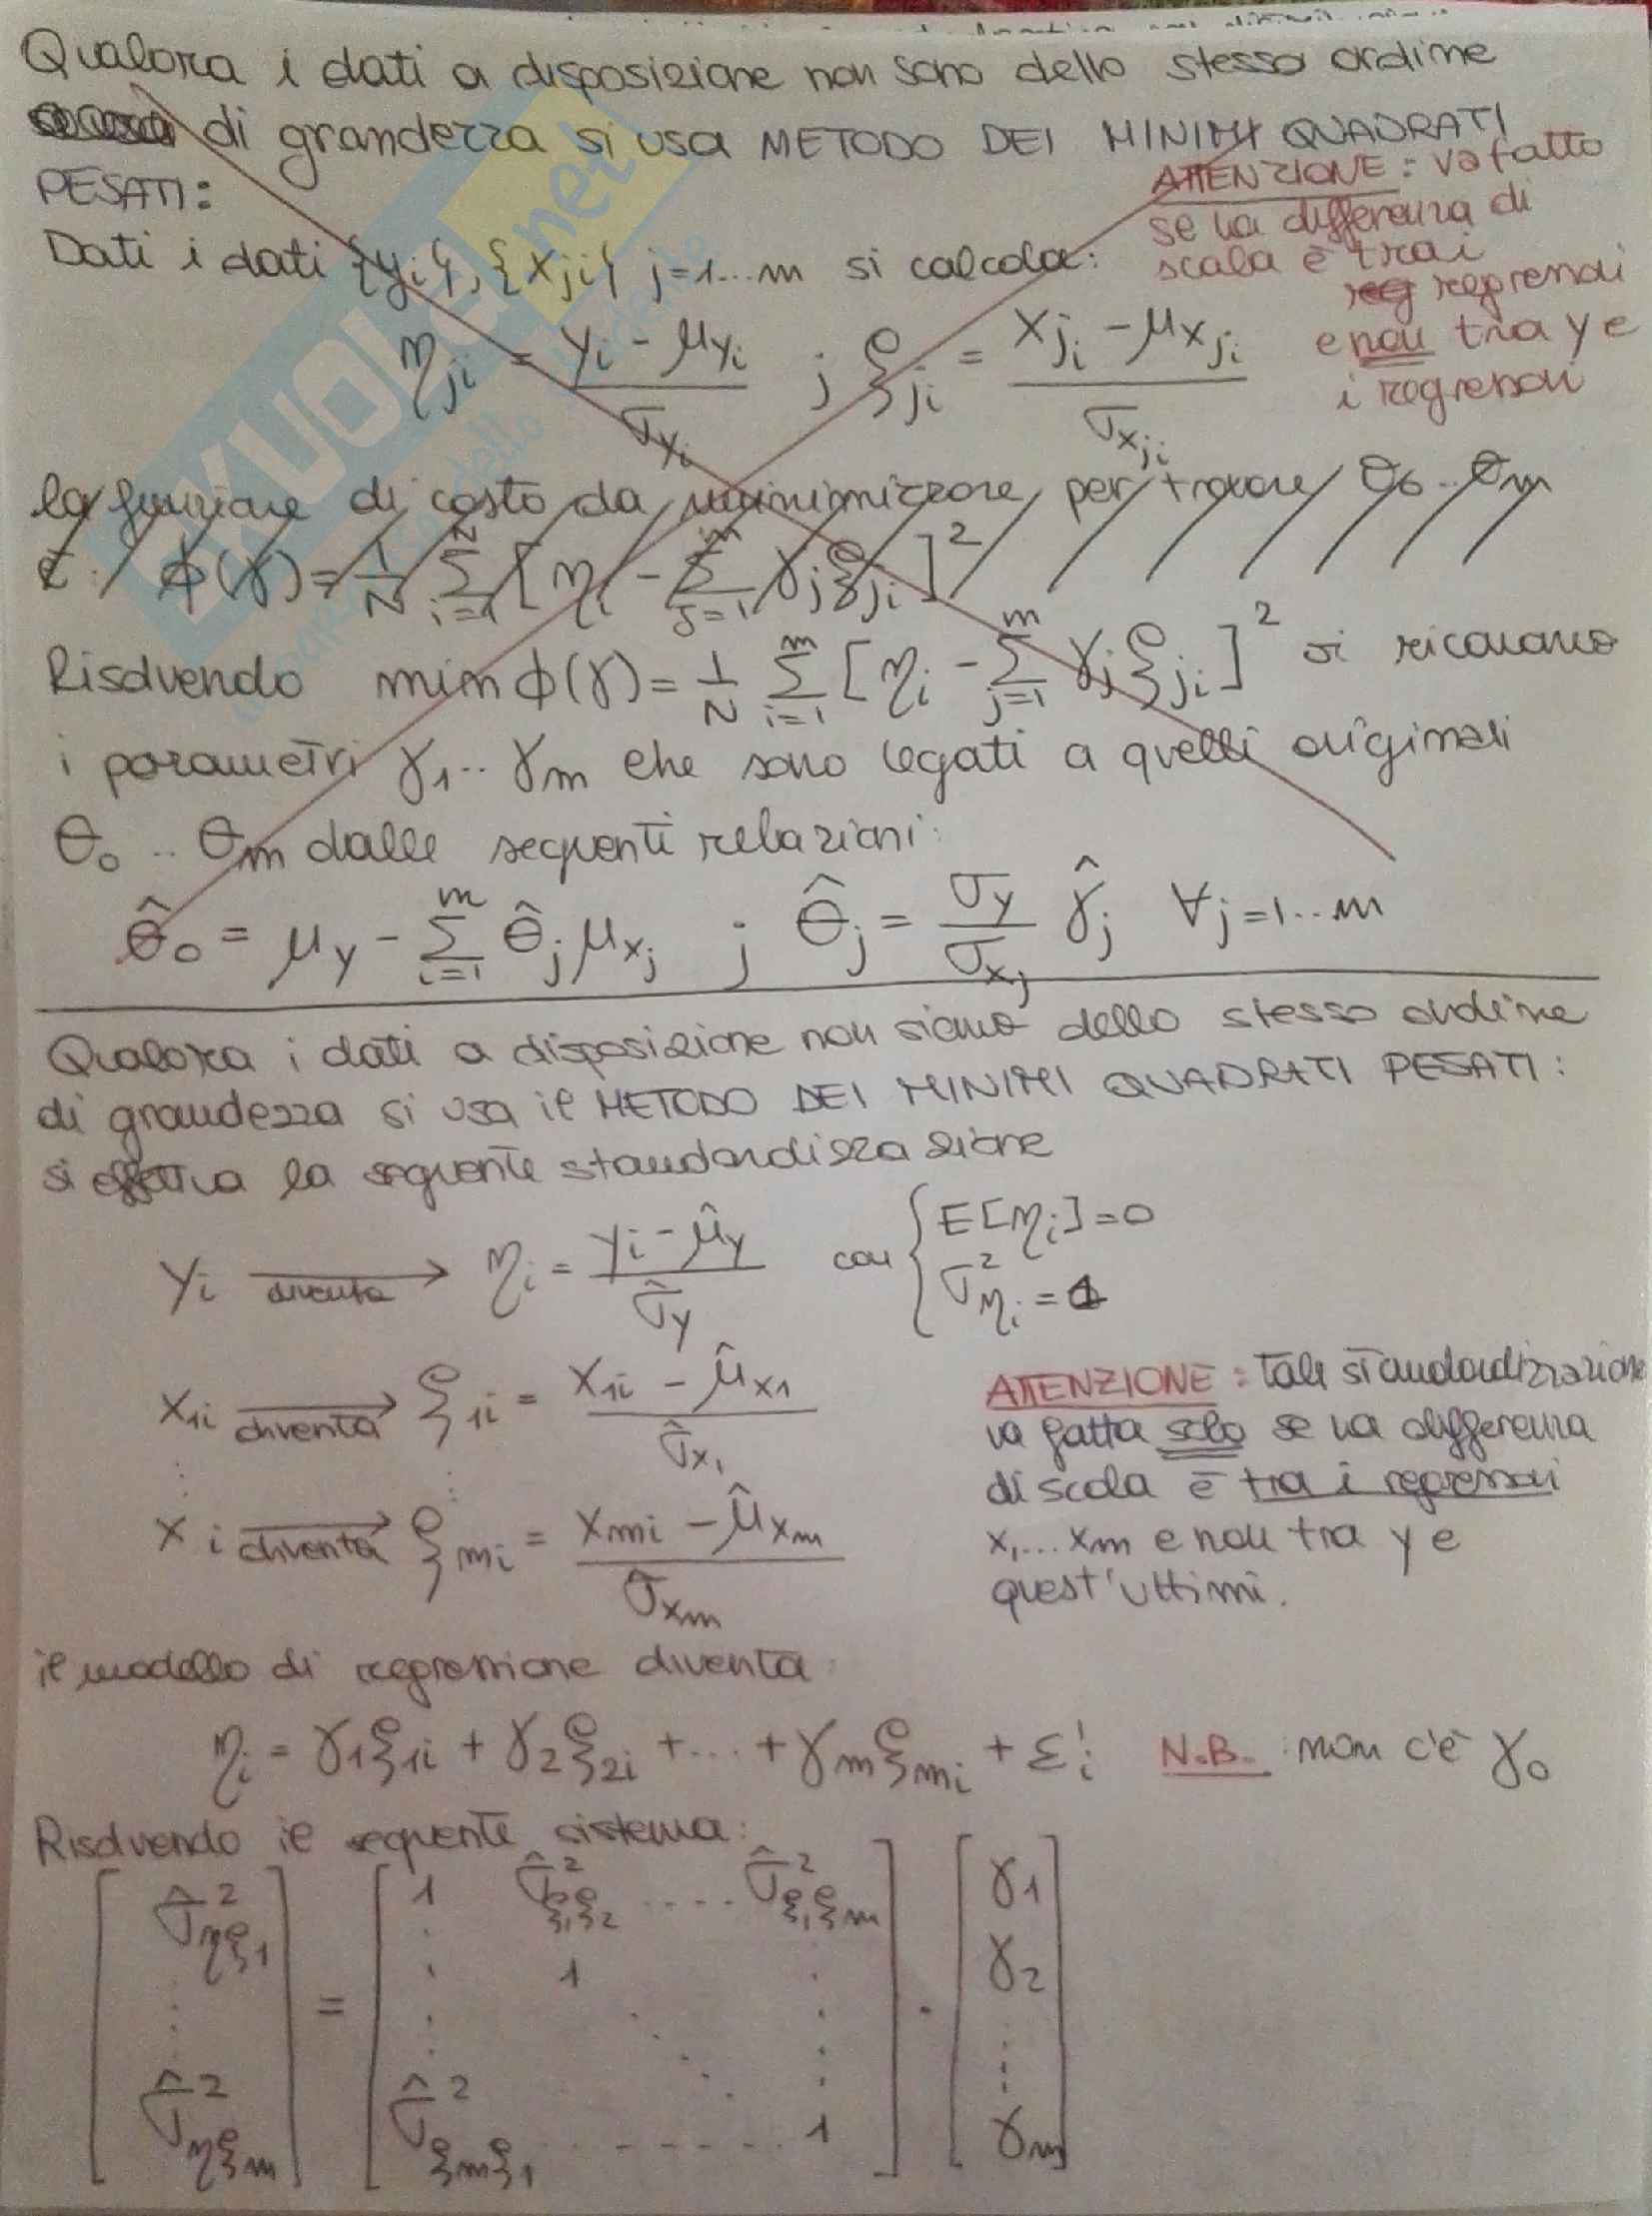 Qualora i dati a disposizione non sono dello stesso ordine
di grandezza si usa METODO DEI MINIMI QUADRATI
PESATI:
ATTENZIONE: va fatto
se la differenza di
scala è tra i
regressori
e non tra y e
i regressori
Dati i dati {yi}, {xji} j=1...m si calcola:
ηji = (yi - μyi) / σyi ; ξji = (xji - μxji) / σxji
la funzione di costo da minimizzare per trovare θ0 .. θm
è: ϕ(γ) = 1/N Σ_{i=1}^{N} [ηi - Σ_{j=1}^{m} γj ξji]²
Risolvendo min ϕ(γ) = 1/N Σ_{i=1}^{m} [ηi - Σ_{j=1}^{m} γj ξji]² si ricavano
i parametri γ1 .. γm che sono legati a quelli originali
θ0 .. θm dalle seguenti relazioni:
θ̂0 = μy - Σ_{i=1}^{m} θ̂j μxj ; θ̂j = (σy / σxj) γ̂j ∀j=1...m
Qualora i dati a disposizione non siano dello stesso ordine
di grandezza si usa il METODO DEI MINIMI QUADRATI PESATI:
si effettua la seguente standardizzazione
yi diventa → ηi = (yi - μ̂y) / σ̂y con { E[ηi] = 0
σ²ηi = 1
x1i diventa → ξ1i = (x1i - μ̂x1) / σ̂x1
⋮
x i diventa → ξmi = (xmi - μ̂xm) / σ̂xm
ATTENZIONE: tale standardizzazione
va fatta solo se la differenza
di scala è tra i regressori
x1...xm e non tra y e
quest'ultimi.
il modello di regressione diventa:
ηi = γ1ξ1i + γ2ξ2i + ... + γmξmi + εi' N.B.: non c'è γ0
Risolvendo il seguente sistema:
[σ̂²ηξ1 ⋮ σ̂²ηξm] = [1 σ̂²ξ1ξ2 .... σ̂²ξ1ξm ⋮ 1 ⋱ ⋮ σ̂²ξmξ1 ....... 1] · [γ1 γ2 ⋮ γm]